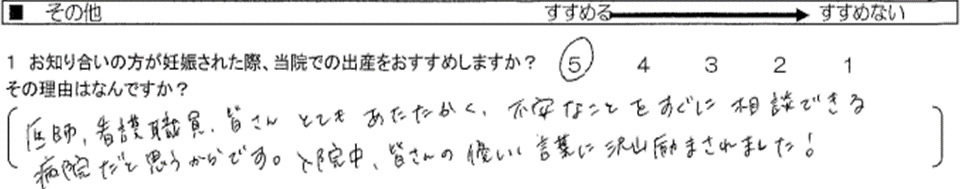 ■ その他 すすめる → すすめない
1 お知り合いの方が妊娠された際、当院での出産をおすすめしますか? 5 4 3 2 1
その理由はなんですか?
医師、看護職員、皆さん とても あたたかく、不安なことをすぐに相談できる
病院だと思うからです。入院中、皆さんの優しい言葉に沢山励まされました!